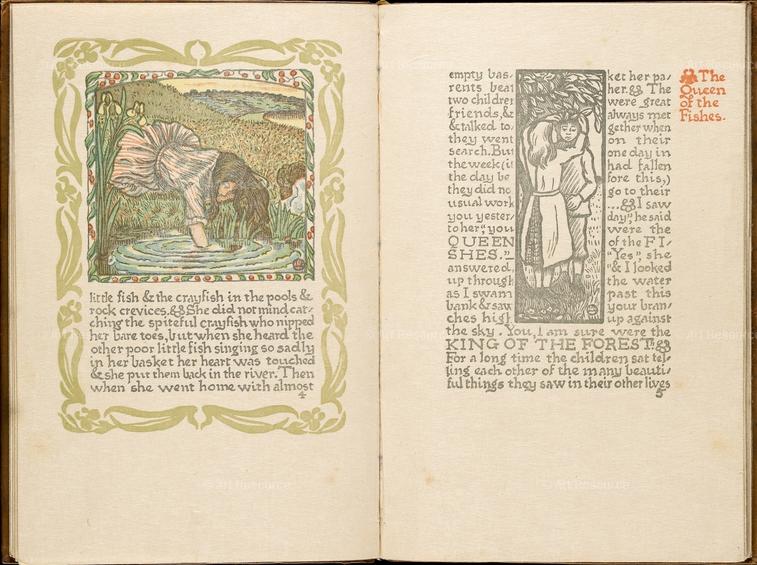 little fish & the crayfish in the pools &
rock crevices. She did not mind cat-
ching the spiteful crayfish who nipped
her bare toes, but when she heard the
other poor little fish singing so sadly
in her basket her heart was touched
& she put them back in the river. Then
when she went home with almost
4
empty bas- ket her pa-
rents beat her. The
two children were great
friends, & always met
& talked to- gether when
they went on their
search. But one day in
the week (it had fallen
the day be- fore this,)
they did not go to their
usual work ... I saw
you yester- day," he said
to her," you were the
QUEEN of the FI-
SHES." "Yes", she
answered. "& I looked
up through the water
as I swam past this
bank & saw your bran-
ches high up against
the sky. You, I am sure were the
KING OF THE FOREST."
For a long time the children sat tel-
ling each other of the many beauti-
ful things they saw in their other lives
5
The
Queen
of the
Fishes.
© Art Resource